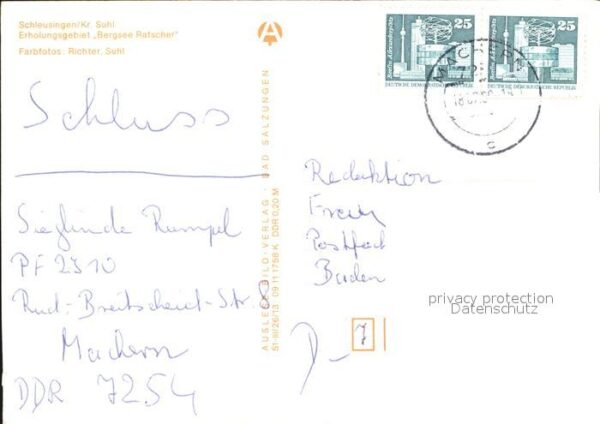 Schleusingen/Kr. Suhl
Erholungsgebiet „Bergsee Ratscher"
Farbfotos: Richter, Suhl
Schluss
Sieglinde Rumpel
PF 2310
Rud.-Breitscheid-Str. 8
Machern
DDR 7254
AUSLESE-BILD-VERLAG · BAD SALZUNGEN
51-III/26/13 09 11 1758 K DDR 0,20 M
25
25
Berlin, Alexanderplatz
Berlin, Alexanderplatz
DEUTSCHE DEMOKRATISCHE REPUBLIK
DEUTSCHE DEMOKRATISCHE REPUBLIK
MACHERN
c
Redaktion
Postfach
Baden
D- 7
privacy protection
Datenschutz